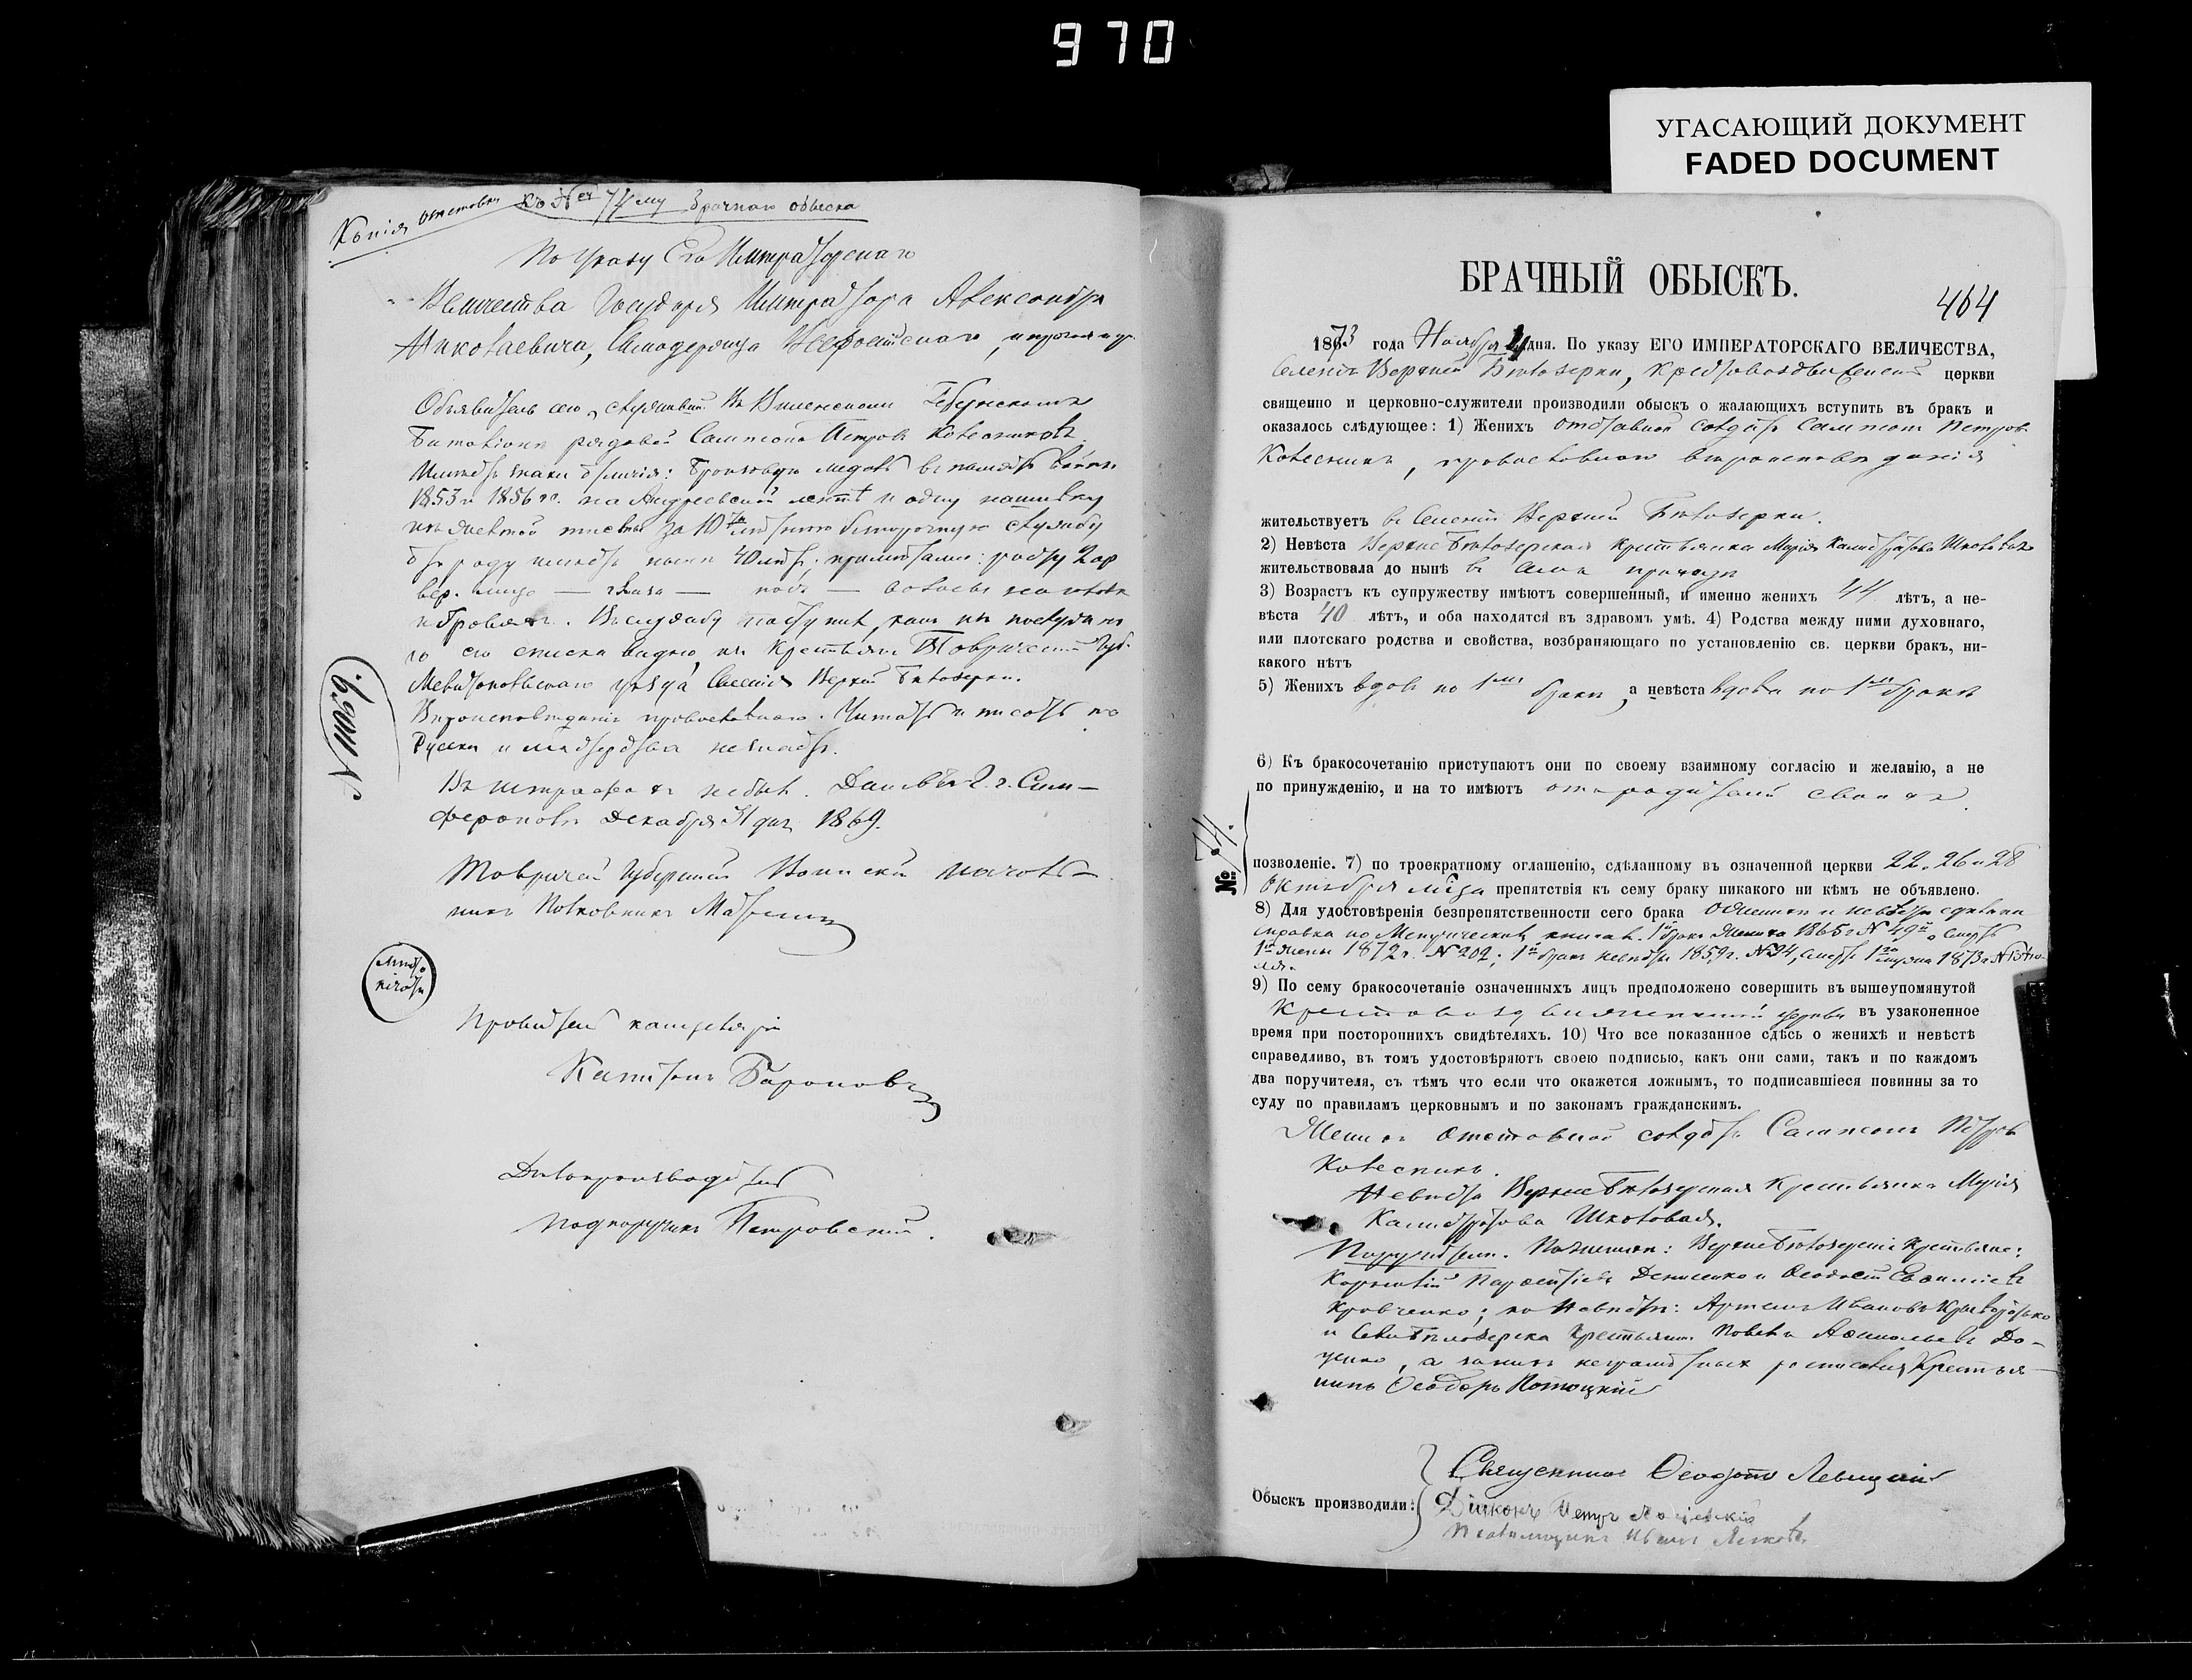 970
УГАСАЮЩИЙ ДОКУМЕНТ
FADED DOCUMENT
Копія къ № 74му Брачнаго обыска
По Указу Его Императорскаго
Величества Государя Императора Александра
Николаевича, Самодержца Всероссійскаго, и прочая и пр.
Объявитель сего, служившій въ Виленскомъ Губернскомъ
Баталіонѣ рядовой Сампсонъ Петровъ Колесниковъ
Имѣетъ знаки отличія: бронзовую медаль въ память войны
1853 и 1856 гг. на Андреевской лентѣ и одну нашивку
изъ желтой тесьмы за 10ти лѣтнюю безпорочную службу
отъ роду имѣетъ нынѣ 40 лѣтъ, примѣтами: росту 2 ар
вер. лицо — глаза — носъ — волосы на головѣ
и бровяхъ. Въ службу поступилъ, какъ изъ послужна
го его списка видно, изъ Крестьянъ Таврической Губ.
Мелитопольскаго уѣзда Селенія Верхней Бѣлозерки.
Вѣроисповѣданія православнаго. Читать и писать по
Русски и мастерства незнаетъ.
Въ штрафахъ небылъ. Данъ въ г. Сим-
ферополѣ Декабря 31 дня 1869.
Таврическій Губернскій Воинскій Началь-
никъ Полковникъ
Мѣсто
печати
Правитель канцеляріи
Капитанъ Бароновъ
Дѣлопроизводитель
Подпоручикъ Петровскій.
БРАЧНЫЙ ОБЫСКЪ.
464
1873 года Ноября 4 дня. По указу ЕГО ИМПЕРАТОРСКАГО ВЕЛИЧЕСТВА,
Селенія Верхней Бѣлозерки, Крестовоздвиженской церкви
священно и церковно-служители производили обыскъ о жалающихъ вступить въ бракъ и
оказалось слѣдующее: 1) Женихъ отставной солдатъ Сампсонъ Петровъ
Колесникъ, православнаго вѣроисповѣданія
жительствуетъ въ Селеніи Верхней Бѣлозерки.
2) Невѣста Верхнебѣлозерская крестьянка Марія Калистратова Школовая
жительствовала до нынѣ въ семъ приходѣ
3) Возрастъ къ супружеству имѣютъ совершенный, и именно женихъ 44 лѣтъ, а не-
вѣста 40 лѣтъ, и оба находятся въ здравомъ умѣ. 4) Родства между ними духовнаго,
или плотскаго родства и свойства, возбраняющаго по установленію св. церкви бракъ, ни-
какого нѣтъ
5) Женихъ вдовъ по 1мъ бракѣ, а невѣста вдова по 1мъ бракѣ
6) Къ бракосочетанію приступаютъ они по своему взаимному согласію и желанію, а не
по принужденію, и на то имѣютъ отъ родителей своихъ
позволеніе. 7) по троекратному оглашенію, сдѣланному въ означенной церкви 22. 26 и 28
Октября мѣца препятствія къ сему браку никакого ни кѣмъ не объявлено.
8) Для удостовѣренія безпрепятственности сего брака о Женихѣ и невѣстѣ сдѣлана
справка по Метрическимъ книгамъ. 1й бракъ Жениха 1865 г № 49й, смерть
1й жены 1872 г. № 202; 1й бракъ невѣсты 1859 г. № 24, смерть 1го мужа 1873 г №
9) По сему бракосочетаніе означенныхъ лицъ предположено совершить въ вышеупомянутой
Крестовоздвиженской церкви въ узаконенное
время при постороннихъ свидѣтеляхъ. 10) Что все показанное сдѣсь о женихѣ и невѣстѣ
справедливо, въ томъ удостовѣряютъ своею подписью, какъ они сами, такъ и по каждомъ
два поручителя, съ тѣмъ что если что окажется ложнымъ, то подписавшіеся повинны за то
суду по правиламъ церковнымъ и по законамъ гражданскимъ.
Женихъ отставной солдатъ Сампсонъ Петровъ
Колесникъ.
Невѣста Верхнебѣлозерская Крестьянка Марія
Калистратова Школовая.
Поручители. По женихѣ: Верхнебѣлозерскіе Крестьяне:
Корнилій Денисенко и Ѳеодосій Евфиміевъ
Кравченко; по Невѣстѣ: Артемъ Ивановъ Криворотько
и Села Бѣлозерка крестьянинъ Павелъ До-
ценко, а за нихъ неграмотныхъ росписался Крестья-
нинъ Ѳеодоръ Потоцкій
Обыскъ производили:
Священникъ Ѳеодотъ Левицкій
Діаконъ Петръ
Псаломщикъ Иванъ